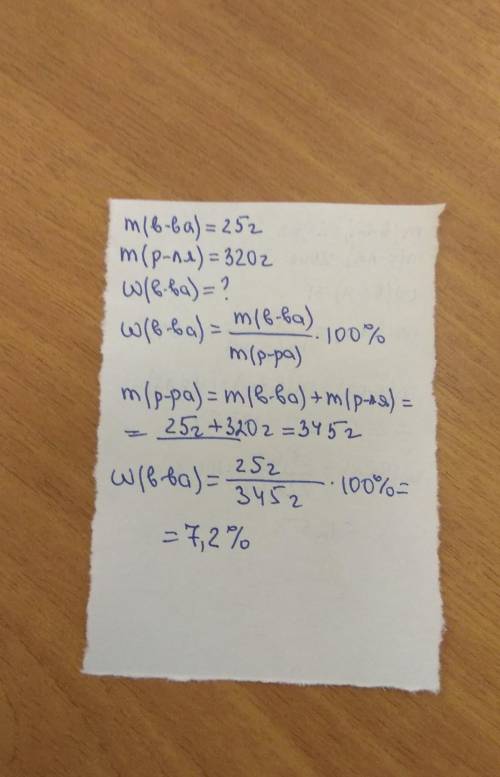 m(в-ва) = 25г
m(р-ля) = 320г
ω(в-ва) = ?
ω(в-ва) = m(в-ва) / m(р-ра) · 100%
m(р-ра) = m(в-ва) + m(р-ля) =
= 25г + 320г = 345г
ω(в-ва) = 25г / 345г · 100% =
= 7,2%